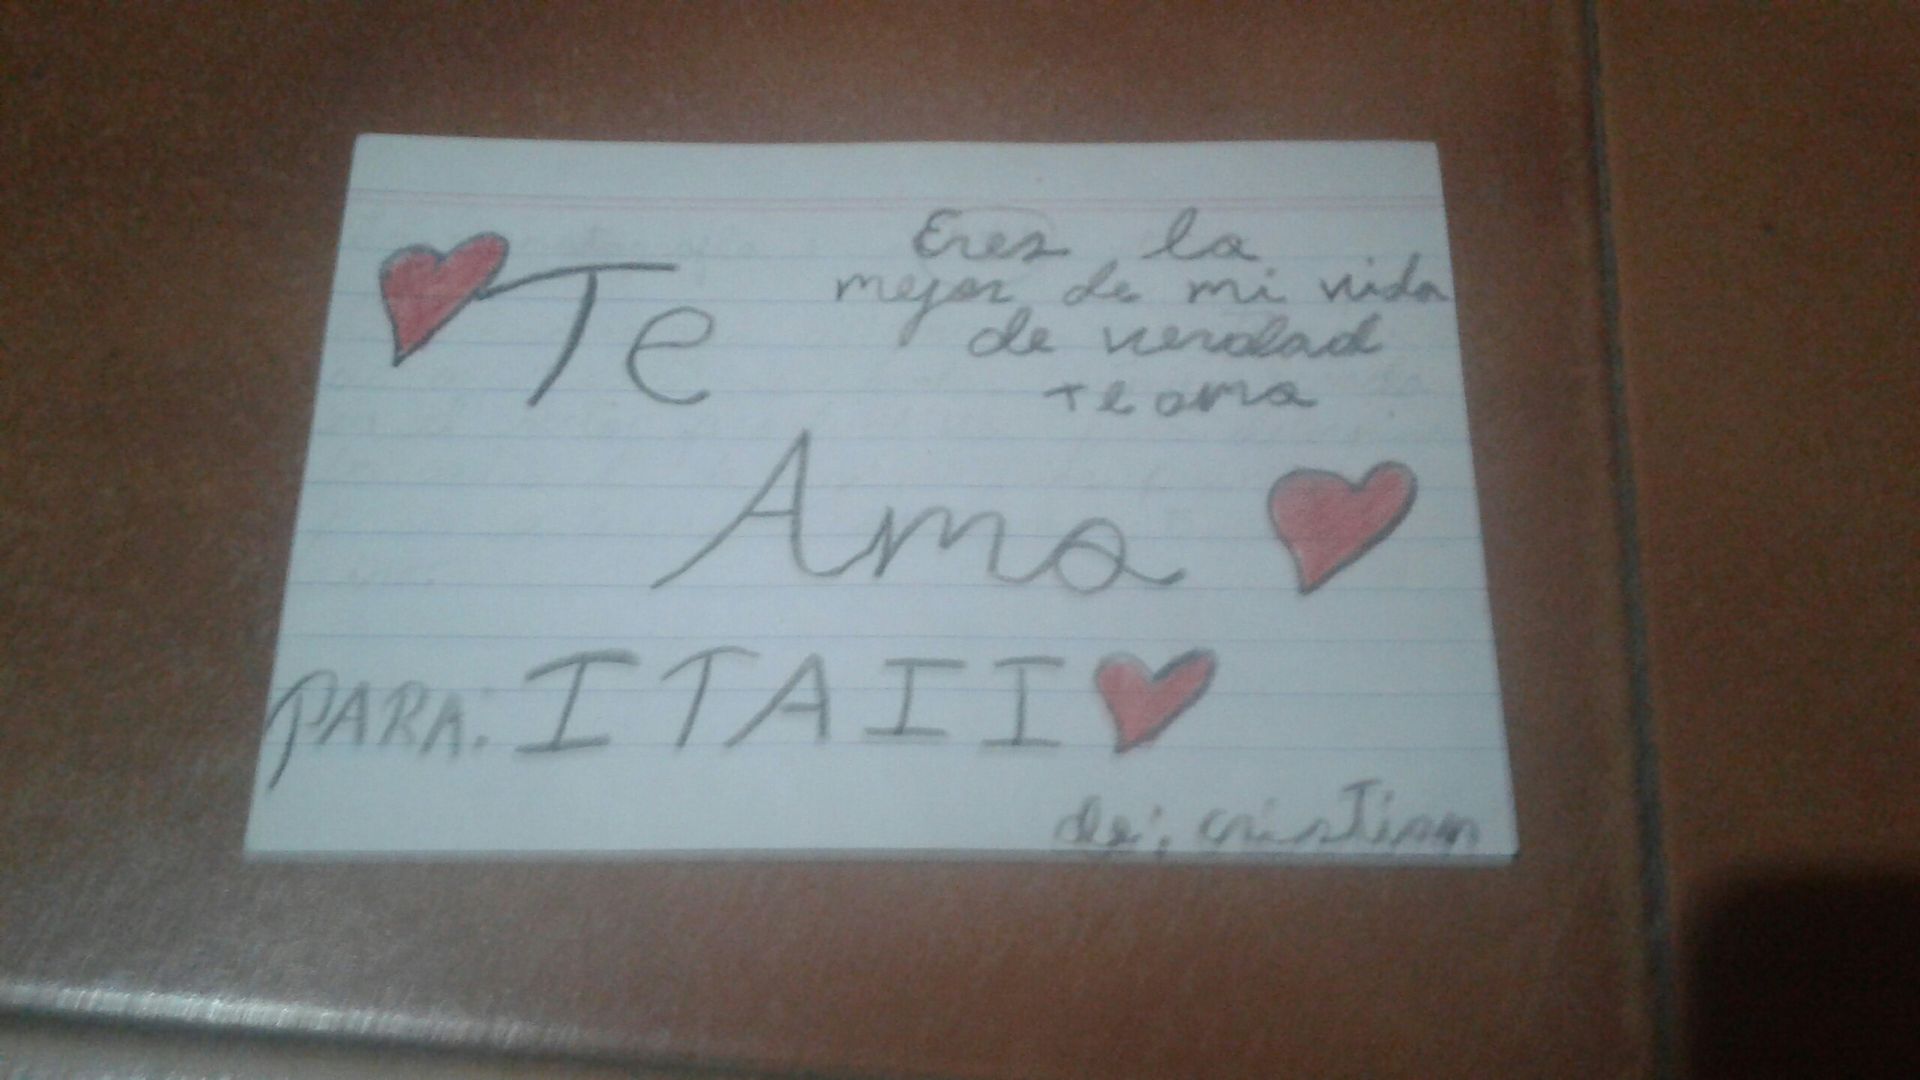 Te
Amo
Eres la
mejor de mi vida
de verdad
te amo
PARA: ITAII
de: cristian